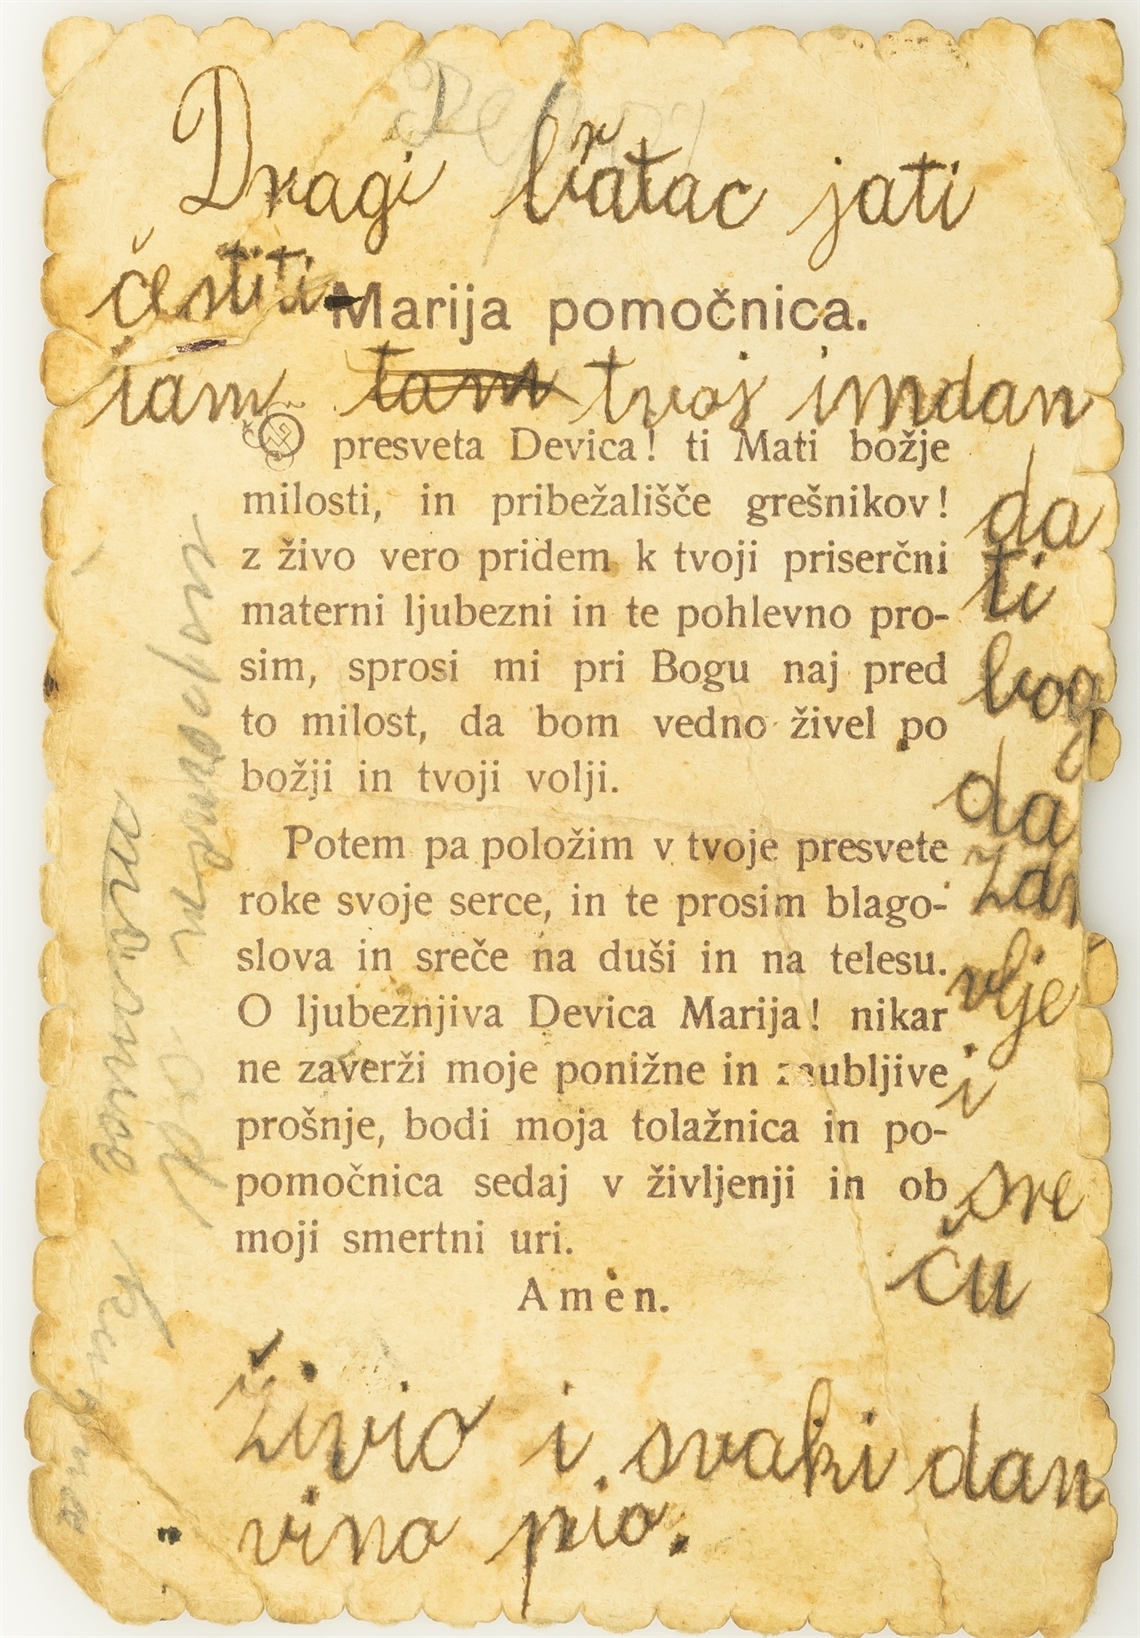 Dragi bratac jati
čestiti
Marija pomočnica.
tam tam tvoj imdan
O presveta Devica! ti Mati božje
milosti, in pribežališče grešnikov!
z živo vero pridem k tvoji priserčni
materni ljubezni in te pohlevno pro-
sim, sprosi mi pri Bogu naj pred
to milost, da bom vedno živel po
božji in tvoji volji.
Potem pa položim v tvoje presvete
roke svoje serce, in te prosim blago-
slova in sreče na duši in na telesu.
O ljubeznjiva Devica Marija! nikar
ne zaverži moje ponižne in zaubljive
prošnje, bodi moja tolažnica in po-
pomočnica sedaj v življenji in ob
moji smertni uri.
Amen.
da
ti
bog
da
zdr
vlje
i
sre
ču
Živio i svaki dan
vino pio.